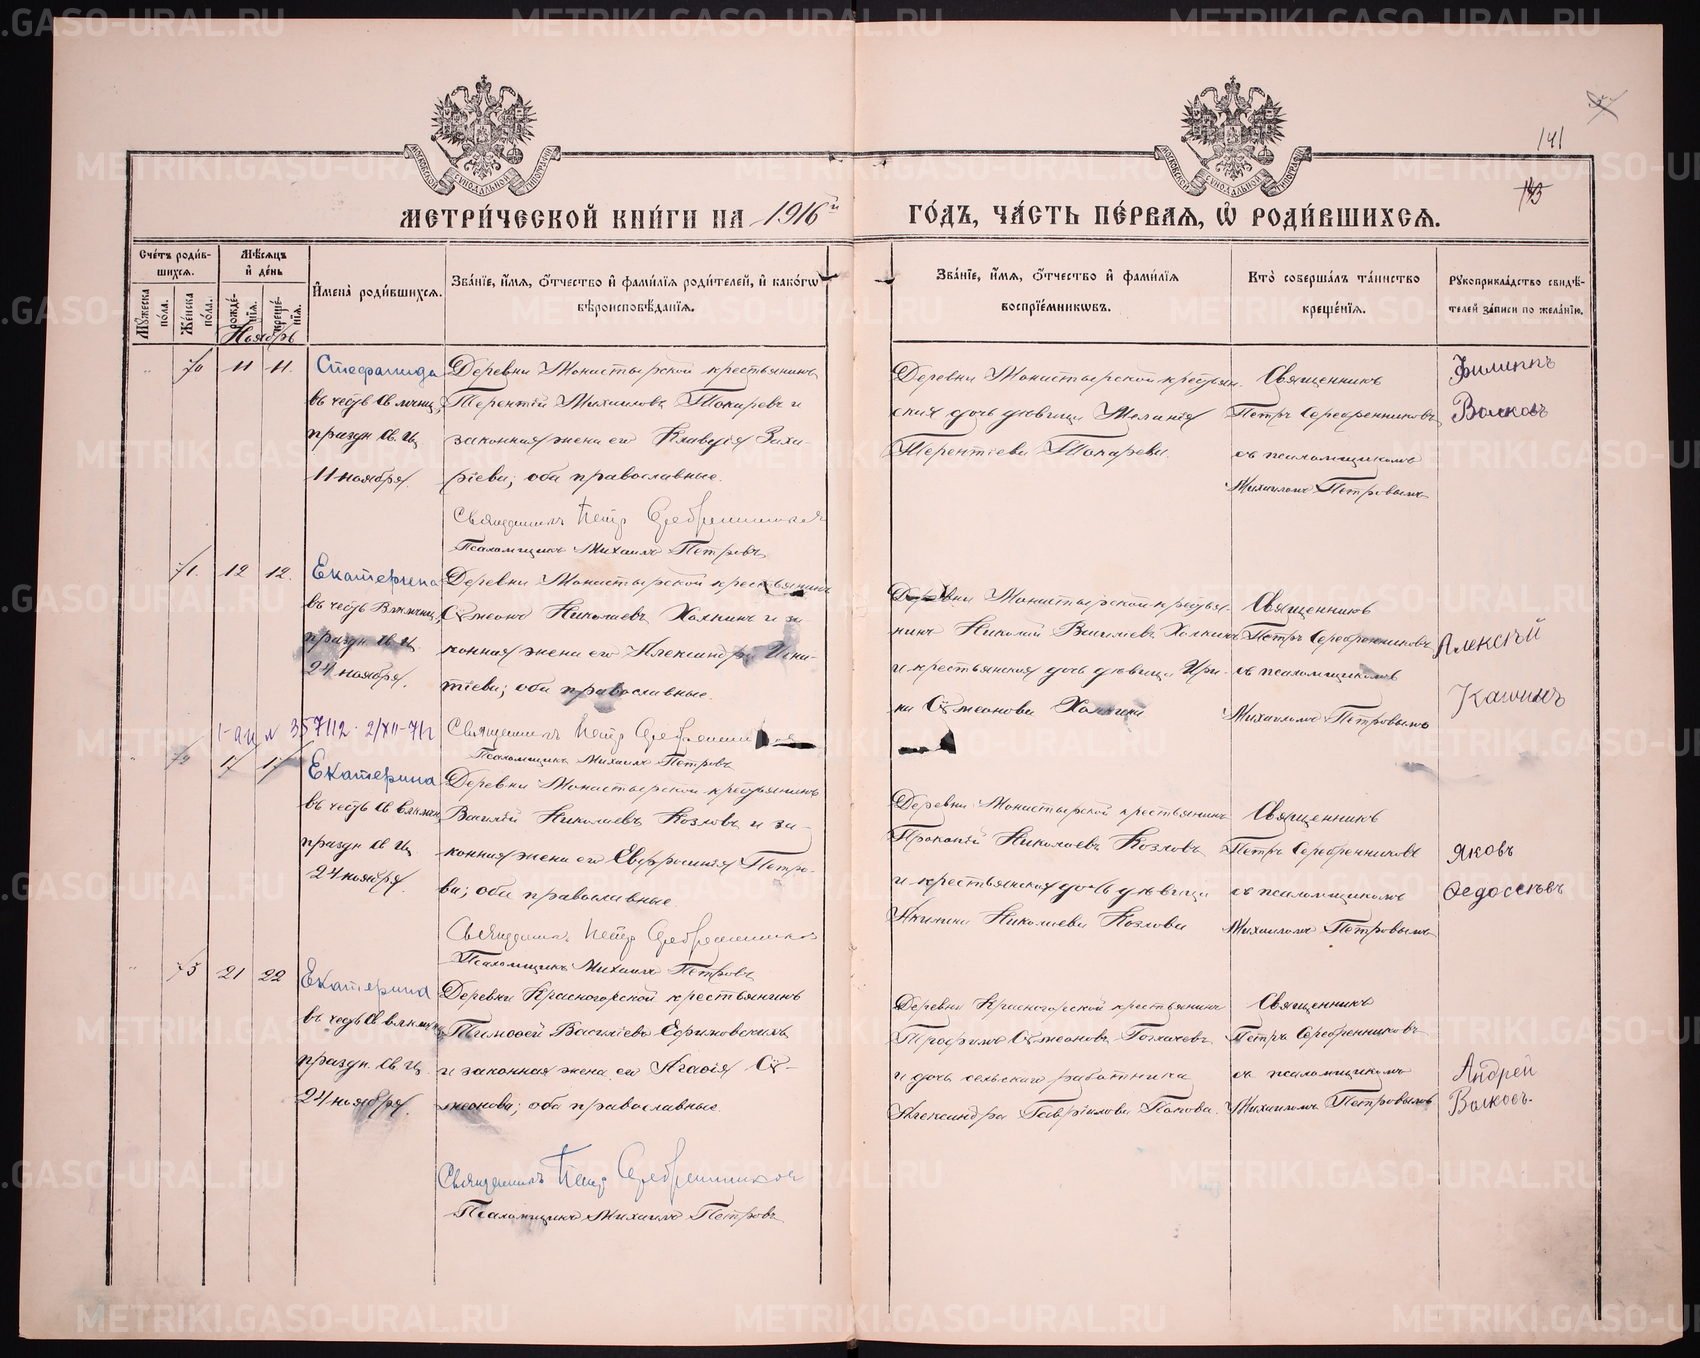 141
МЕТРИ́ЧЕСКОЙ КНИ́ГИ НА 1916й ГО́ДЪ, ЧА́СТЬ ПЕ́РВАЯ, Ѡ҆ РОДИ́ВШИХСЯ.
Сче́тъ роди́в-
шихся.
Мꙋ́жеска по́ла.
Же́нска по́ла.
Мѣ́сяцъ
и҆ де́нь
рожде́нїя.
креще́нїя.
Ноябрь
И҆мена̀ роди́вшихся.
Зва́нїе, и҆́мя, ѻ҆́тчество и҆ фами́лїя роди́телей, и҆ како́гѡ
вѣроисповѣ́данїя.
Зва́нїе, и҆́мя, ѻ҆́тчество и҆ фами́лїя
воспрїе́мникѡвъ.
Кто̀ соверша́лъ та́инство
креще́нїя.
Рꙋкоприкла́дство свидѣ́-
телей за́писи по жела́нїю.
70 11 11.
Стефанида
въ честь св. мчниц.
праздн. св. Ц.
11 ноября.
Деревни Монастырской крестьянинъ
Терентій Михаиловъ Токаревъ и
законная жена его Клавдія Заха-
ріева; оба православные.
Священникъ Петръ Серебренниковъ
Псаломщикъ Михаилъ Петровъ
Деревни Монастырской крестьян-
ская дочь дѣвица Меланія
Терентіева Токарева.
Священникъ
Петръ Серебренниковъ
съ псаломщикомъ
Михаиломъ Петровымъ
Филиппъ
Волковъ
71. 12 12.
Екатерина
въ честь Влкмчниц.
праздн. св. Ц.
24 ноября.
Деревни Монастырской крестьянинъ
Сѵмеонъ Николаевъ Халкинъ и за-
конная жена его Александра Игна-
тіева; оба православные.
Священникъ Петръ Серебренниковъ
Псаломщикъ Михаилъ Петровъ
Деревни Монастырской крестья-
нинъ Николай Василіевъ Халкинъ
и крестьянская дочь дѣвица Ири-
на Сѵмеонова Халкина
Священникъ
Петръ Серебренниковъ
съ псаломщикомъ
Михаиломъ Петровымъ
Алексѣй
Кашинъ
357112 2/XII-71г
72 17 17
Екатерина
въ честь св. влкмчн.
праздн. св. Ц.
24 ноября.
Деревни Монастырской крестьянинъ
Василій Николаевъ Козловъ и за-
конная жена его Евфросинія Петро-
ва; оба православные.
Священникъ Петръ Серебренниковъ
Псаломщикъ Михаилъ Петровъ
Деревни Монастырской крестьянинъ
Прокопій Николаевъ Козловъ
и крестьянская дочь дѣвица
Николаева Козлова
Священникъ
Петръ Серебренниковъ
съ псаломщикомъ
Михаиломъ Петровымъ
Яковъ
Федосѣевъ
73 21 22
Екатерина
въ честь св. влкмчн.
праздн. св. Ц.
24 ноября.
Деревни Красногорской крестьянинъ
Тимофей Василіевъ Ефимовскихъ
и законная жена его Агафія Сѵ-
меонова; оба православные.
Священникъ Петръ Серебренниковъ
Псаломщикъ Михаилъ Петровъ
Деревни Красногорской крестьянинъ
Трофимъ Сѵмеоновъ
и дочь сельскаго работника
Александра Гавріилова Попова.
Священникъ
Петръ Серебренниковъ
съ псаломщикомъ
Михаиломъ Петровымъ
Андрей
Волковъ.
METRIKI.GASO-URAL.RU